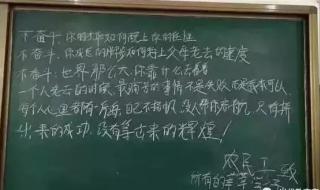 不奋斗,你的才华如何配上你的任性
不奋斗,你成长的脚步如何赶上父母老去的速度
不奋斗,世界那么大,你靠什么去看看
一个人老去的时候,最痛苦的事情,不是失败,而是我本可以
每个人心里都有一片海,自己不扬帆,没人帮你启航,只有拼
出来的成功,没有等出来的辉煌!
农民工